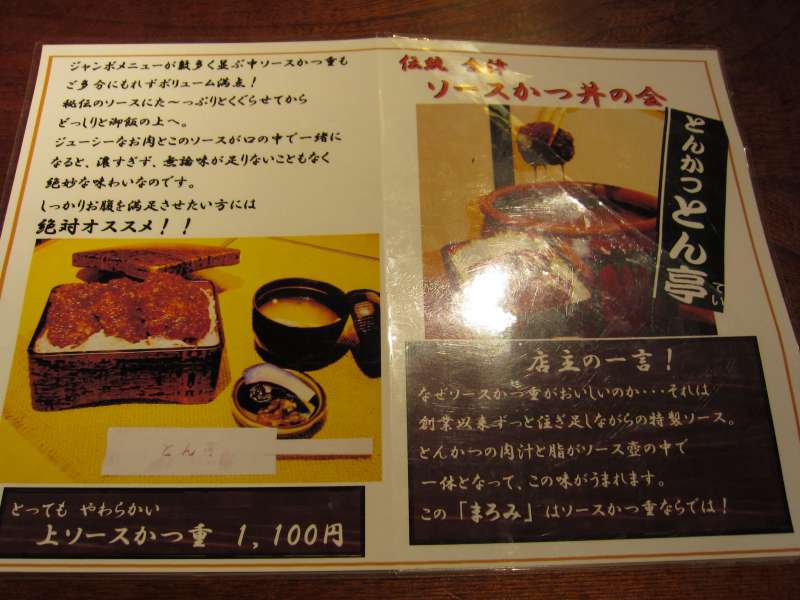 ジャンボメニューが数多く並ぶ中ソースかつ重も
ご多分にもれずボリューム満点！
秘伝のソースにた〜っぷりとくぐらせてから
どっしりと御飯の上へ。
ジューシーなお肉とこのソースが口の中で一緒に
なると、濃すぎず、無論味が足りないこともなく
絶妙な味わいなのです。
しっかりお腹を満足させたい方には
絶対オススメ！！
とっても やわらかい
上ソースかつ重 1,100円
伝統 会津
ソースかつ丼の会
とんかつとん亭
てい
店主の一言！
なぜソースかつ重がおいしいのか・・・・それは
創業以来ずっと注ぎ足しながらの特製ソース。
とんかつの肉汁と脂がソース壺の中で
一体となって、この味がうまれます。
この「まろみ」はソースかつ重ならでは！